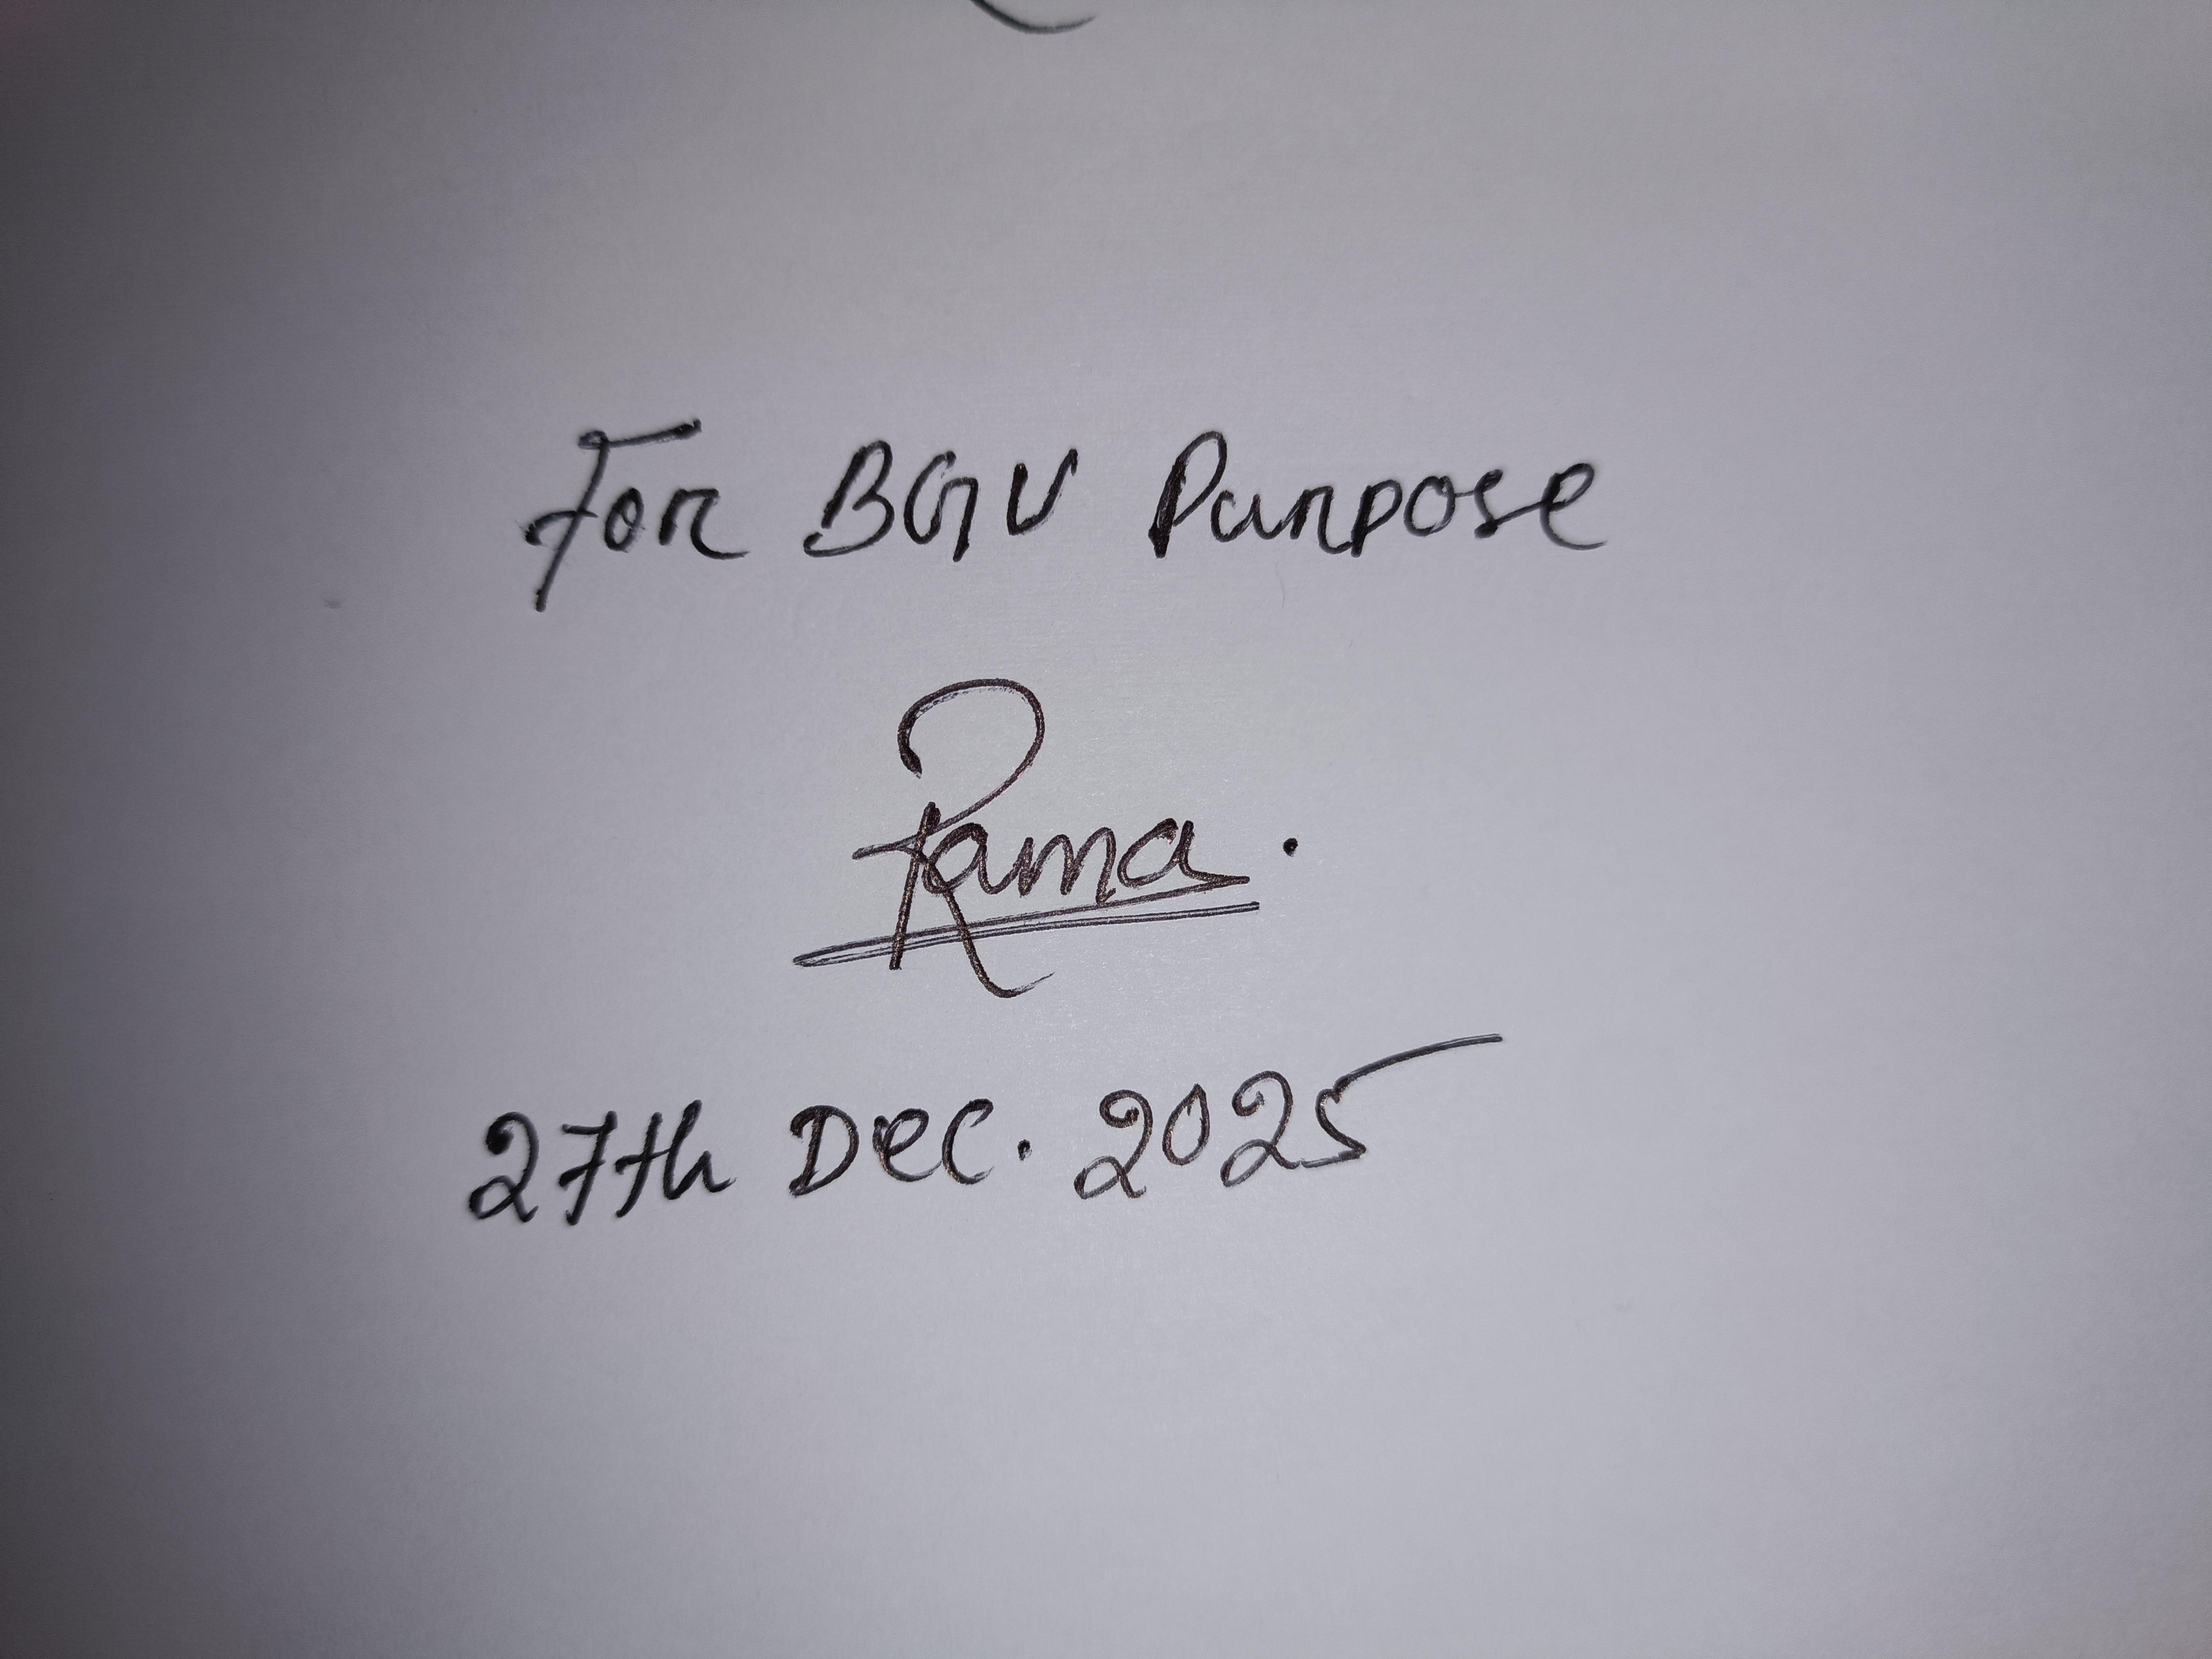 For BGV Purpose
Rama.
27th Dec. 2025